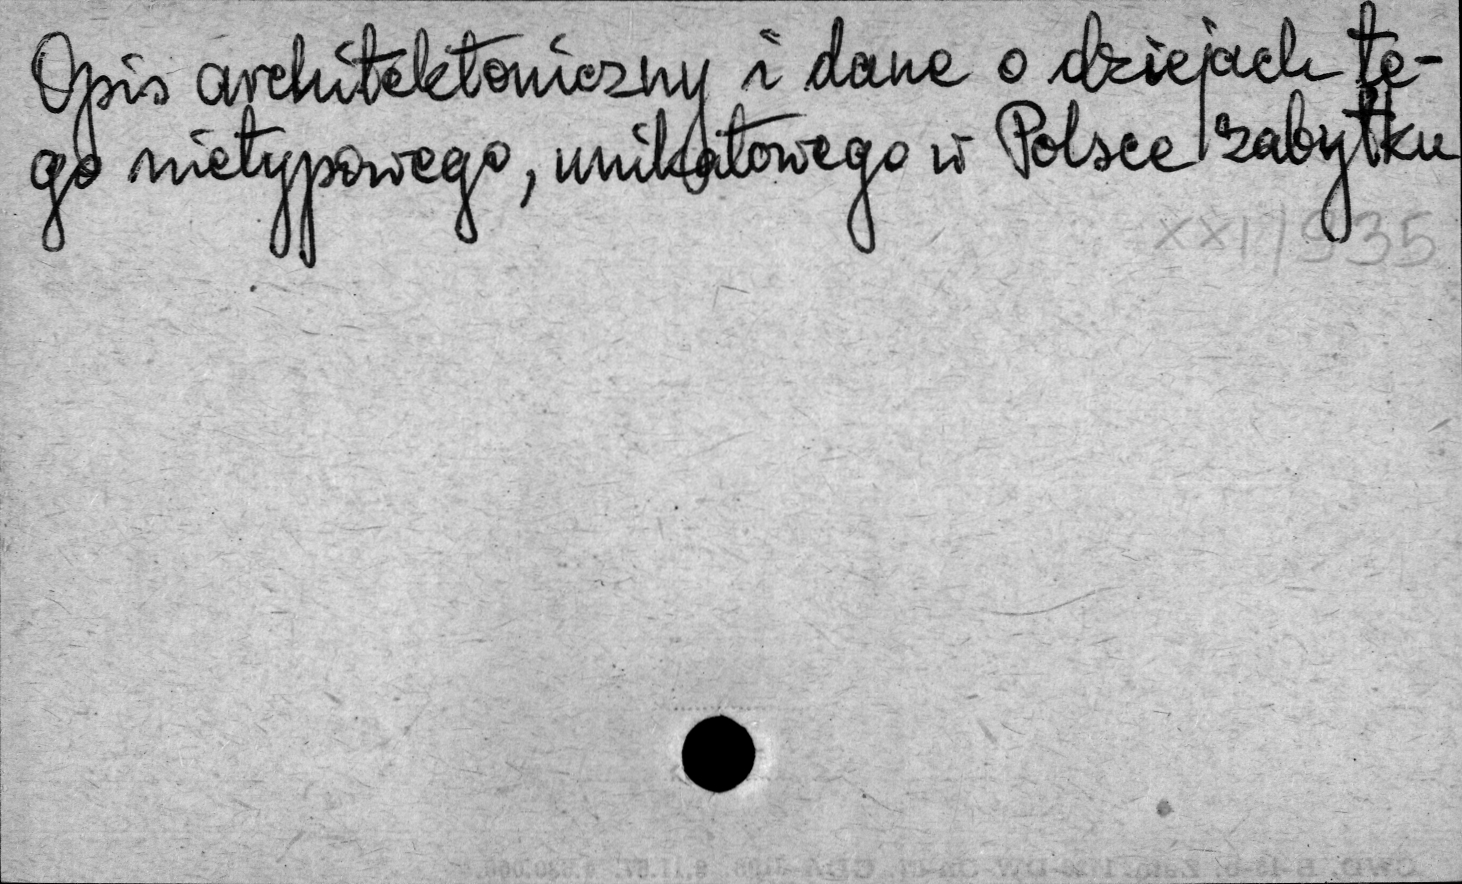 Opis architektoniczny i dane o dziejach te-
go nietypowego, unikatowego w Polsce zabytku
XXI/935